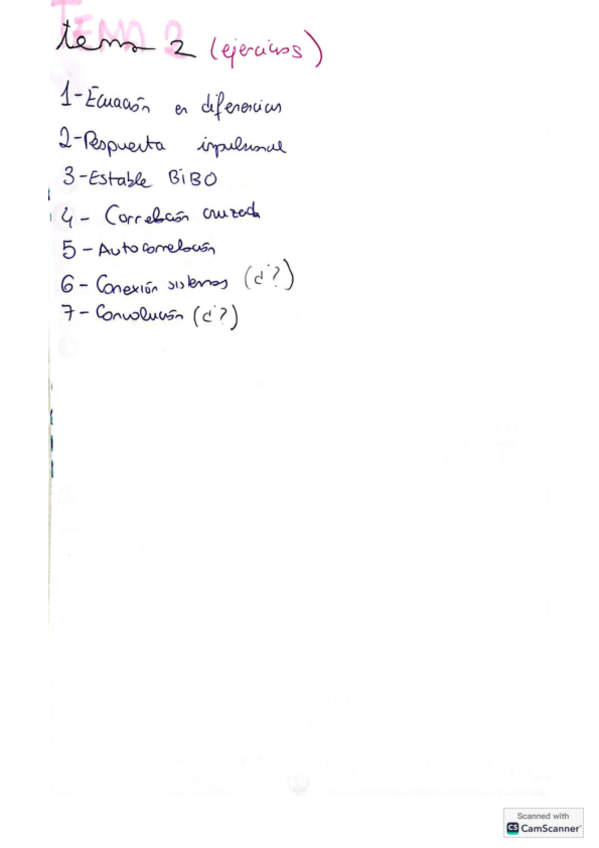 TEMA 2
tema 2 (ejercicios)
1-Ecuación en diferencias
2-Respuesta impulsional
3-Estable BIBO
4- Correlación cruzada
5-Autocorrelación
6-Conexión sistemas (c'?)
7-Convolución (c'?)
Scanned with
CS CamScanner